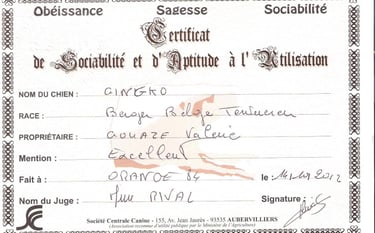 Obéissance Sagesse Sociabilité
Certificat
de Sociabilité et d'Aptitude à l'Utilisation
NOM DU CHIEN : GINGKO
RACE : Berger Belge Tervueren
PROPRIÉTAIRE : GOUAZE Valerie
Mention : Excellent
Fait à : ORANGE 84 le : 2012
Nom du Juge : Mme RIVAL Signature :
Société Centrale Canine - 155, Av. Jean Jaurès - 93535 AUBERVILLIERS
(Association reconnue d'utilité publique par le Ministère de l'Agriculture)